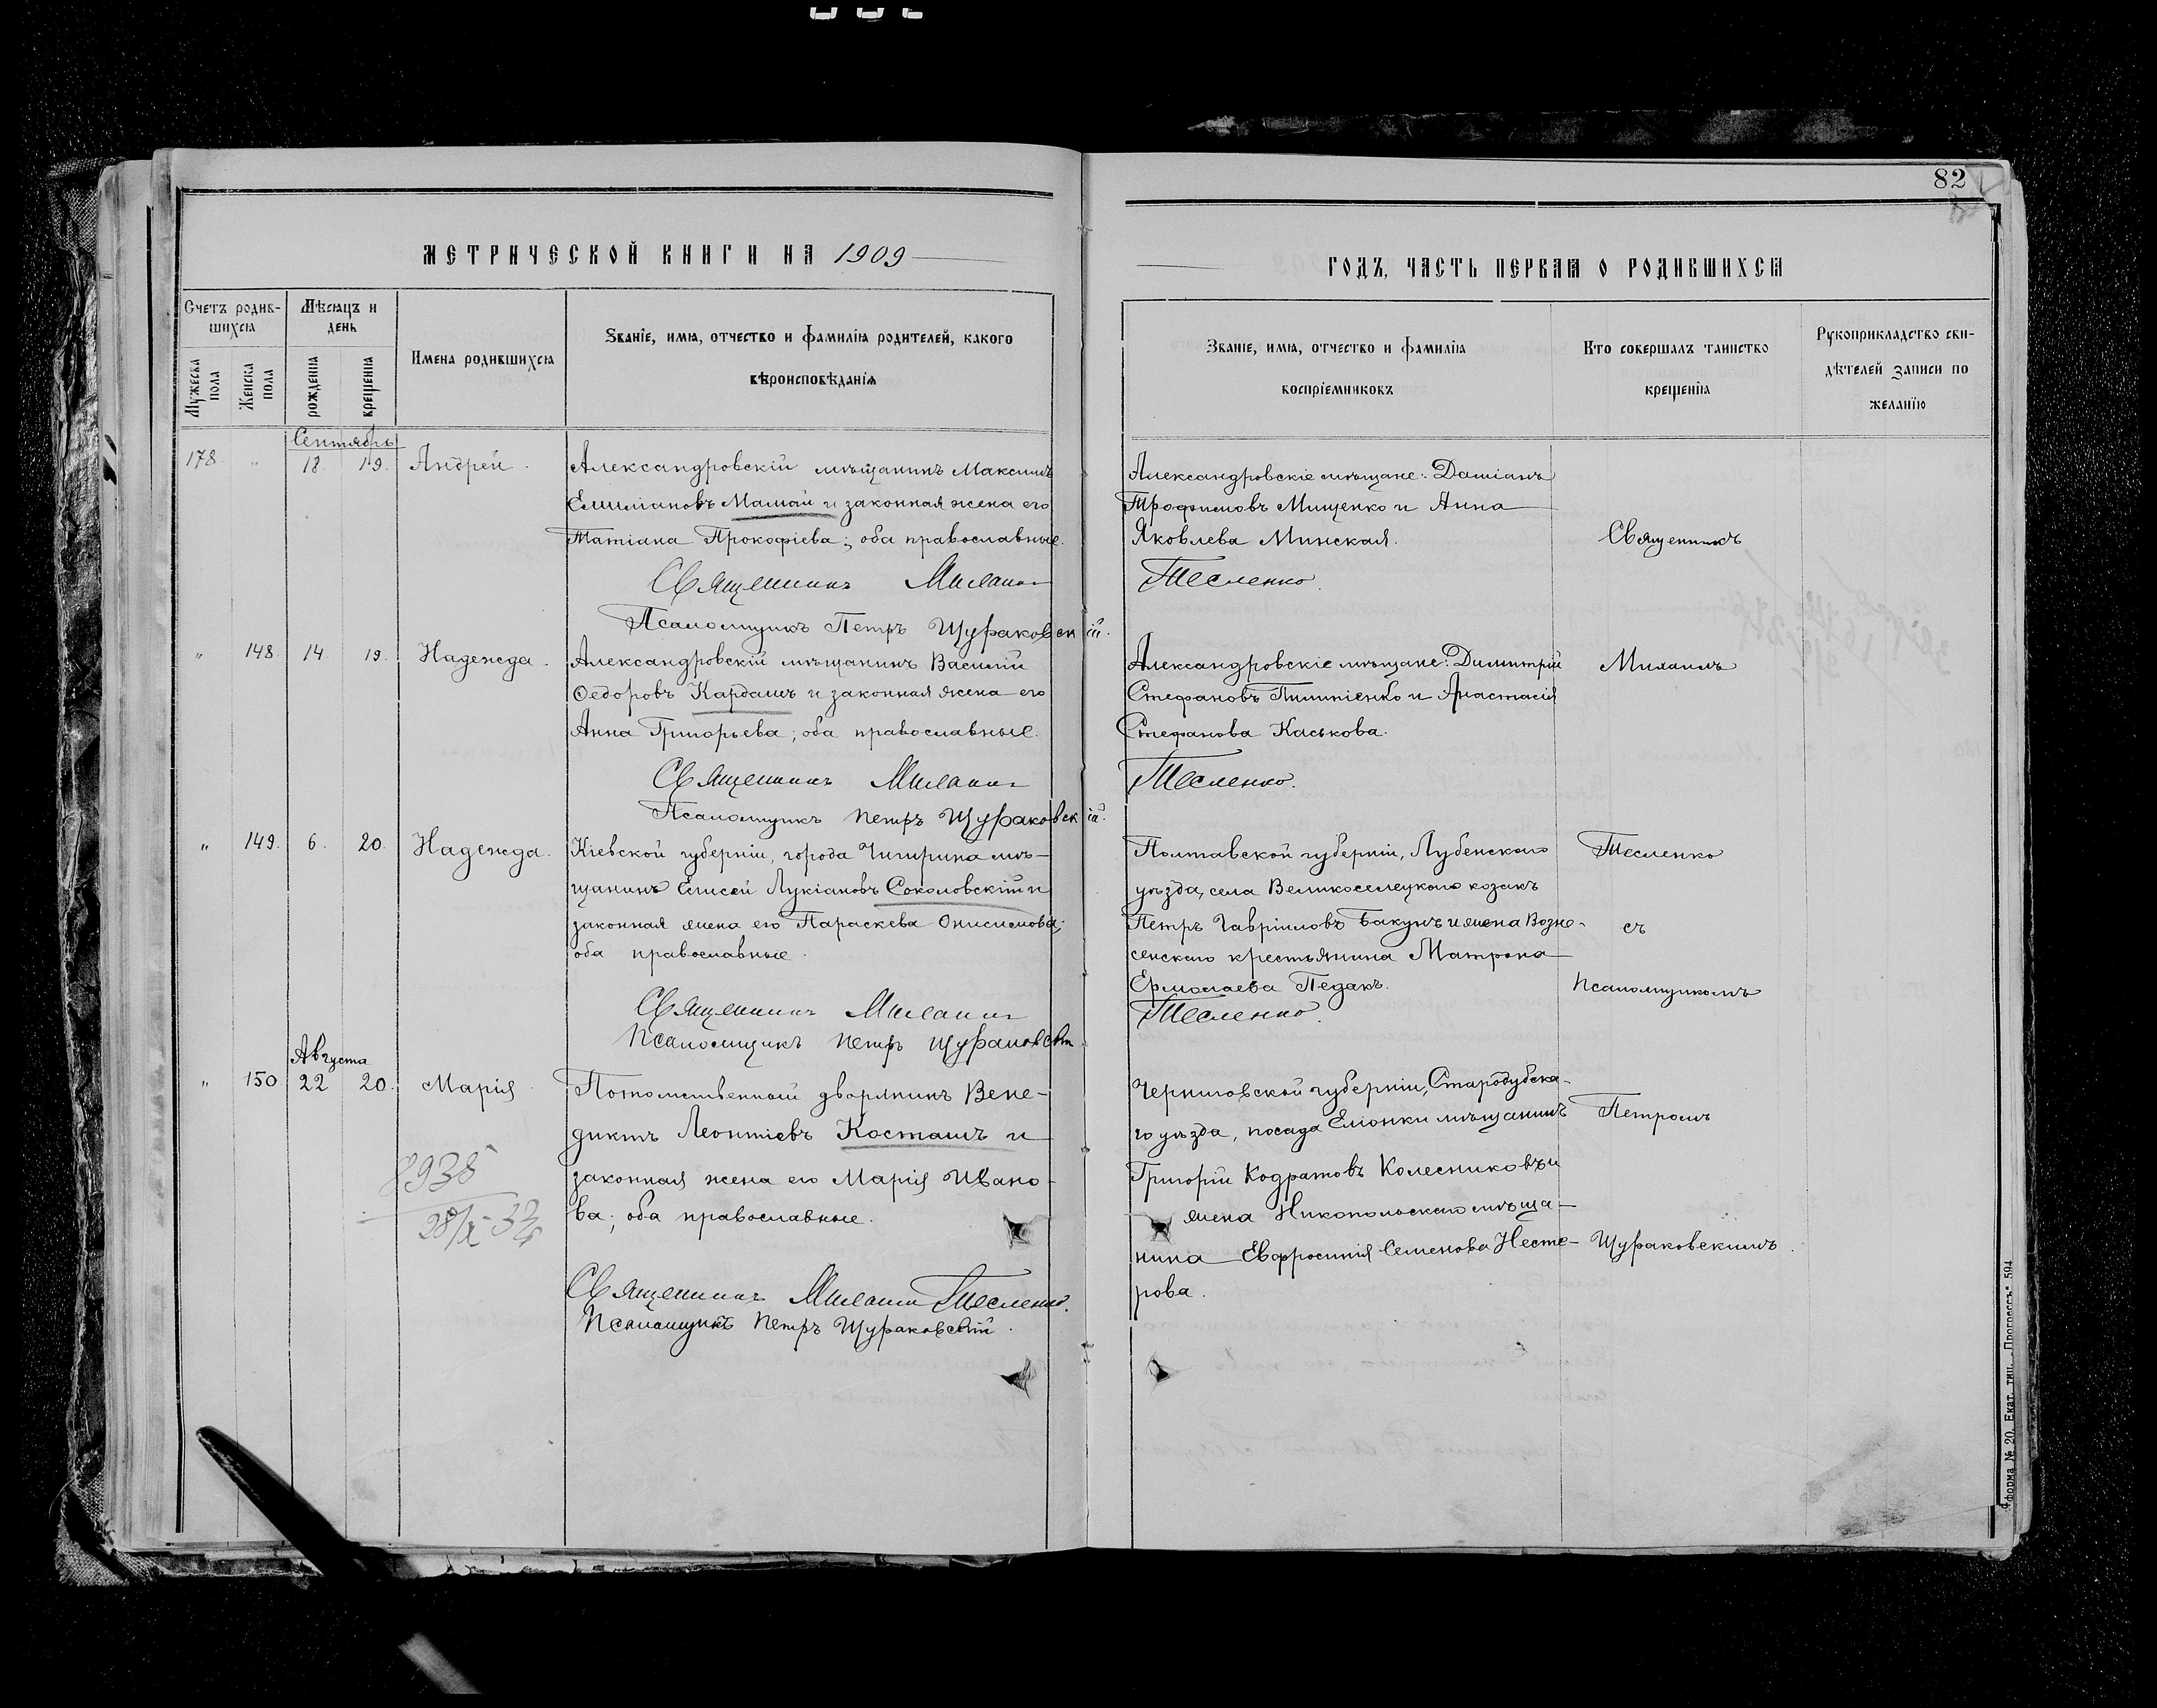 82
МЕТРИЧЕСКОЙ КНИГИ НА 1909
ГОДЪ, ЧАСТЬ ПЕРВАЯ О РОДИВШИХСЯ
Счетъ родив-
шихся
Мужеска пола
Женска пола
Мѣсяцъ и
день
рожденія
крещенія
Имена родившихся
Званіе, имя, отчество и фамилія родителей, какого
вѣроисповѣданія
Званіе, имя, отчество и фамилія
воспріемниковъ
Кто совершалъ таинство
крещенія
Рукоприкладство сви-
дѣтелей записи по
желанію
Сентябрь
178 " 18. 19. Андрей.
Александровскій мѣщанинъ Максимъ
Емиліановъ Мамай и законная жена его
Татіана Прокофіева; оба православные.
Священникъ Михаилъ Тесленко.
Псаломщикъ Петръ Щураковскій.
Александровскіе мѣщане: Даміанъ
Трофимовъ Мищенко и Анна
Яковлева Минская.
" 148. 14. 19. Надежда.
Александровскій мѣщанинъ Василій
Ѳедоровъ Кардашъ и законная жена его
Анна Григорьева; оба православные.
Священникъ Михаилъ Тесленко.
Псаломщикъ Петръ Щураковскій.
Александровскіе мѣщане: Димитрій
Стефановъ и Анастасія
Стефанова Каськова.
" 149. 6. 20. Надежда.
Кіевской губерніи, города Чигирина мѣ-
щанинъ Елисей Лукіановъ Соколовскій и
законная жена его Параскева Онисимова;
оба православные.
Священникъ Михаилъ Тесленко.
Псаломщикъ Петръ Щураковскій
Полтавской губерніи, Лубенскаго
уѣзда, села Великоселецкаго козакъ
Петръ Гавріиловъ Бакунъ и жена Возне-
сенскаго крестьянина Матрона
Ермолаева Педакъ.
Августа
" 150 22 20. Марія
Потомственный дворянинъ Вене-
диктъ Леонтіевъ Косташъ и
законная жена его Марія Ивано-
ва; оба православные.
8938
Священникъ Михаилъ Тесленко.
Псаломщикъ Петръ Щураковскій.
Черниговской губерніи, Стародубска-
го уѣзда, посада Еліонки мѣщанинъ
Григорій Кодратовъ Колесниковъ и
жена Никопольскаго мѣща-
нина Евфросинія Семенова Несте-
рова.
Священникъ
Михаилъ
Тесленко
съ
псаломщикомъ
Петромъ
Щураковскимъ.
Форма № 20. Екат. тип. „Прогрессъ" 594